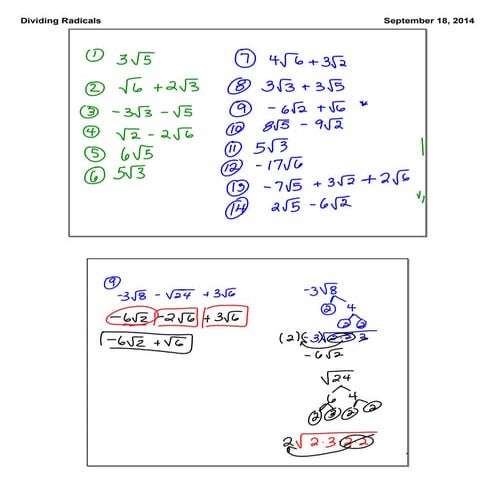 Dividing Radicals September 18, 2014
① 3√5
② √6 + 2√3
③ -3√3 - √5
④ √2 - 2√6
⑤ 6√5
⑥ 5√3
⑦ 4√6 + 3√2
⑧ 3√3 + 3√5
⑨ -6√2 + √6 *
⑩ 8√5 - 9√2
⑪ 5√3
⑫ -17√6
⑬ -7√5 + 3√2 + 2√6
⑭ 2√5 - 6√2
⑨
-3√8 - √24 + 3√6
-6√2 -2√6 +3√6
-6√2 + √6
-3√8
2 4
2 2
(2)(-3)√2·2·2
-6√2
√24
6 4
2 3 2 2
2√2·3·2·2